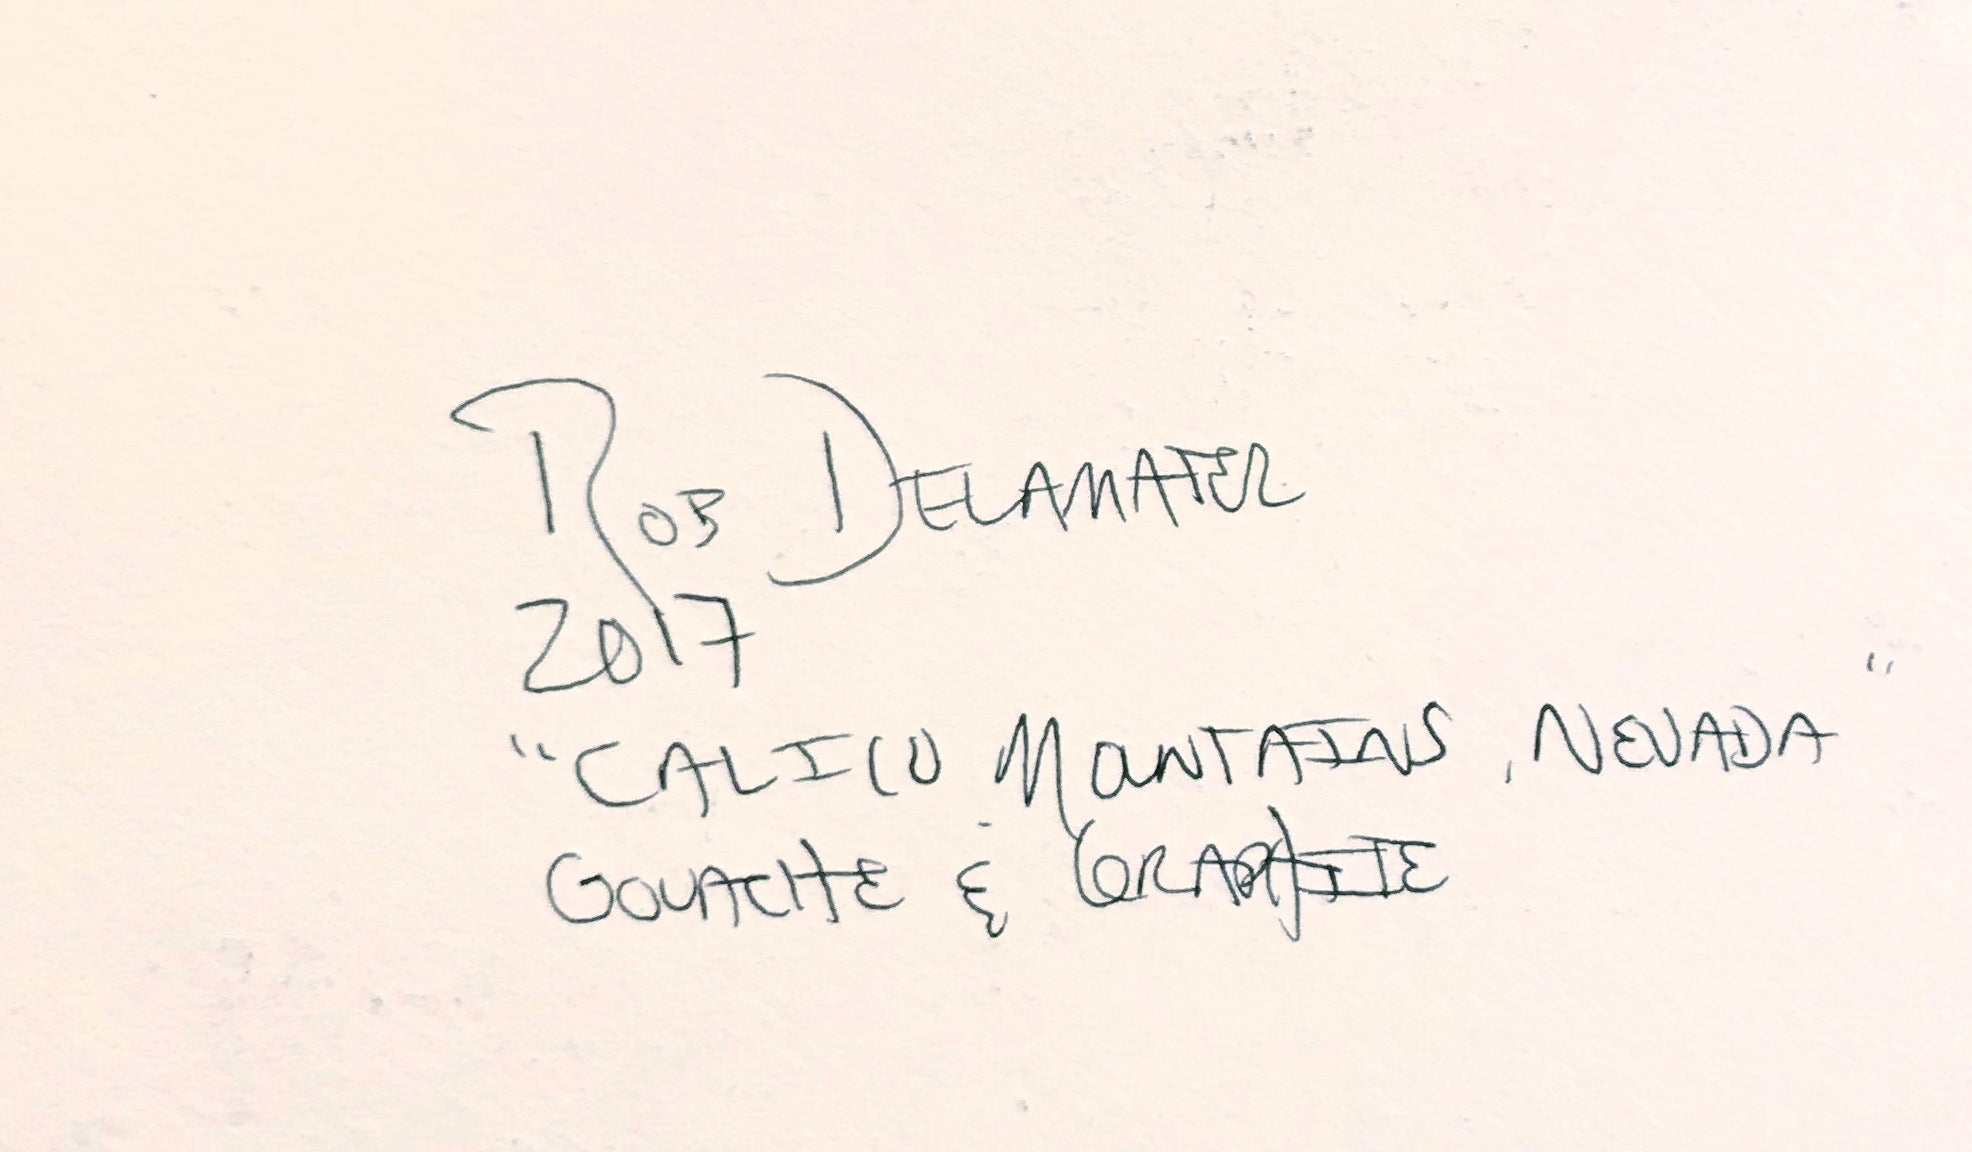 Rob DELAMATER
2017
"CALICO MOUNTAINS, NEVADA"
GOUACHE & GRAPHITE